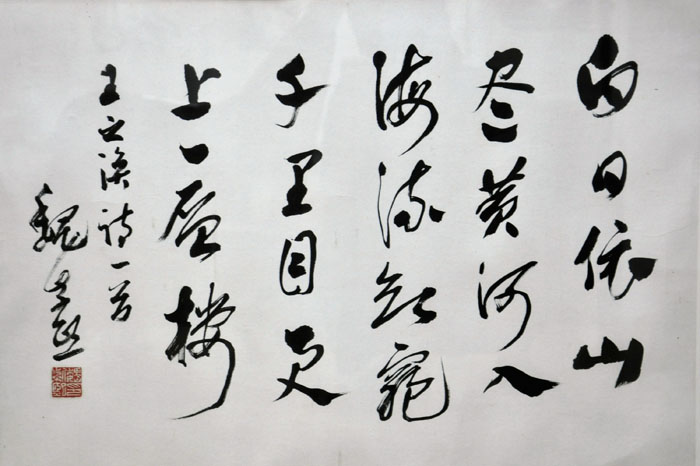 白日依山
尽黄河入
海流欲窮
千里目更
上一层楼
王之涣诗一首
魏